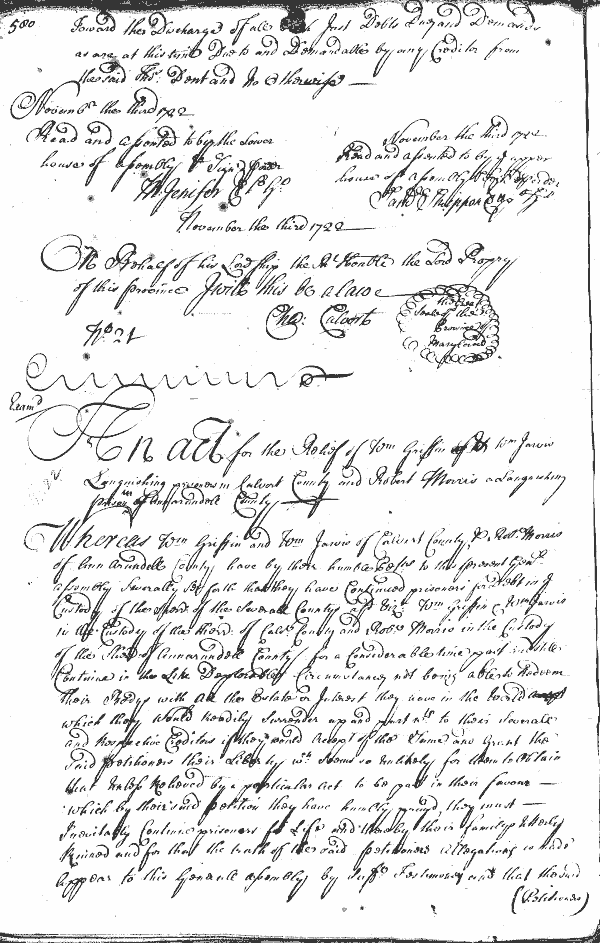 580
Toward the Discharge of all such Just Debts Dues and Demands
as are at this time Due to and Demandable by any Creditor from
the said Thos. Dent and No Otherwise
November the third 1722
Read and assented to by the Lower
house of assembly
Th: Jenifer
November the third 1722
Read and assented to by upper
house of assembly
November the third 1722
On Behalf of his Lordship the Rt Honble the Lord Propry
of this province I will this be a Law
Cha: Calvert
The Great
Seale of the
Province of
Maryland
No 21
Exam'd
An act for the Relief of Wm Griffin Wm Jarvis
Languishing prisoners in Calvert County and Robert Morris a Languishing
prison in Annarundell County
Whereas Wm Griffin and Wm Jarvis of Calvert County & Robt Morris
of Ann Arundell County have by their humble to this present Genl
assembly Severally Set forth that they have Continued prisoners for debt in
Custody of the of the Severall County Wm Griffin Wm Jarvis
in the Custody of the of Calvt County and Robt Morris in the Custody
of the of Annarundell County for a Considerable time past
Continue in the Like Deplorable Circumstances not being able to Redeem
their Bodys with all the Estate or Interest they have in the World
which they would Readily Surrender up and part wth to their Severall
and Respective Creditors if they would accept of the Same and Grant the
Said Petitioners their Liberty wch Seems so unlikely for them to Obtain
that unless Relieved by a particular act to be past in their favour
which by their said petition they have humbly prayed they must
Inevitably Continue prisoners for Life and thereby their familys utterly
Ruined and for that the truth of the said petitioners allegations is made
appear to this Generall assembly by Sufft Testimony and that the said
(Petitioners)